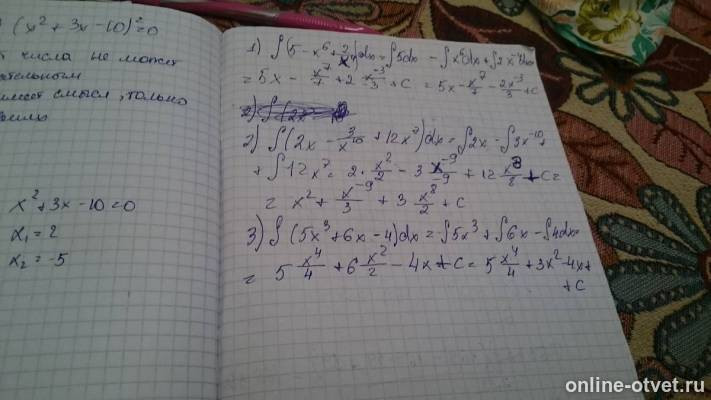 (x² + 3x - 10)² = 0
числа не может
имеет смысл, только
x² + 3x - 10 = 0
x₁ = 2
x₂ = -5
1) ∫(5 - x⁶ + 2/x⁴)dx = ∫5dx - ∫x⁶dx + ∫2x⁻⁴dx
= 5x - x⁷/7 + 2 x⁻³/-3 + C = 5x - x⁷/7 - 2x⁻³/3 + C
2) ∫(2x - 3/x¹⁰ + 12x⁷)dx = ∫2x - ∫3x⁻¹⁰ +
+ ∫12x⁷ = 2 · x²/2 - 3 x⁻⁹/-9 + 12 x⁸/8 + C =
= x² + x⁻⁹/3 + 3 x⁸/2 + C
3) ∫(5x³ + 6x - 4)dx = ∫5x³ + ∫6x - ∫4dx =
= 5 x⁴/4 + 6 x²/2 - 4x + C = 5 x⁴/4 + 3x² - 4x +
+ C
online-otvet.ru